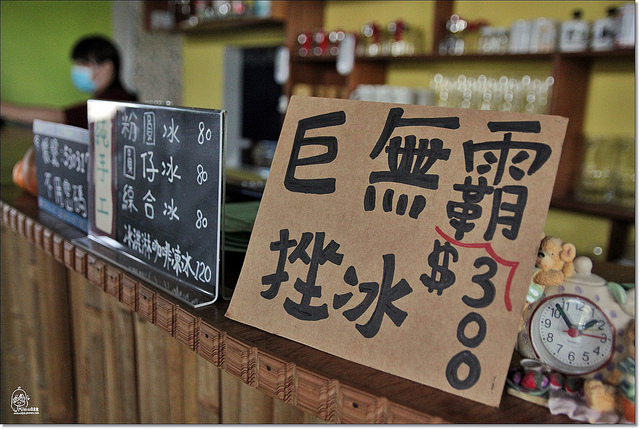 巨無霸
挫冰
$300
粉圓冰 80
圓仔冰 80
綜合冰 80
冰淇淋咖啡凍冰 120
手工
不用密碼
12
1
2
3
4
5
6
7
8
9
10
11